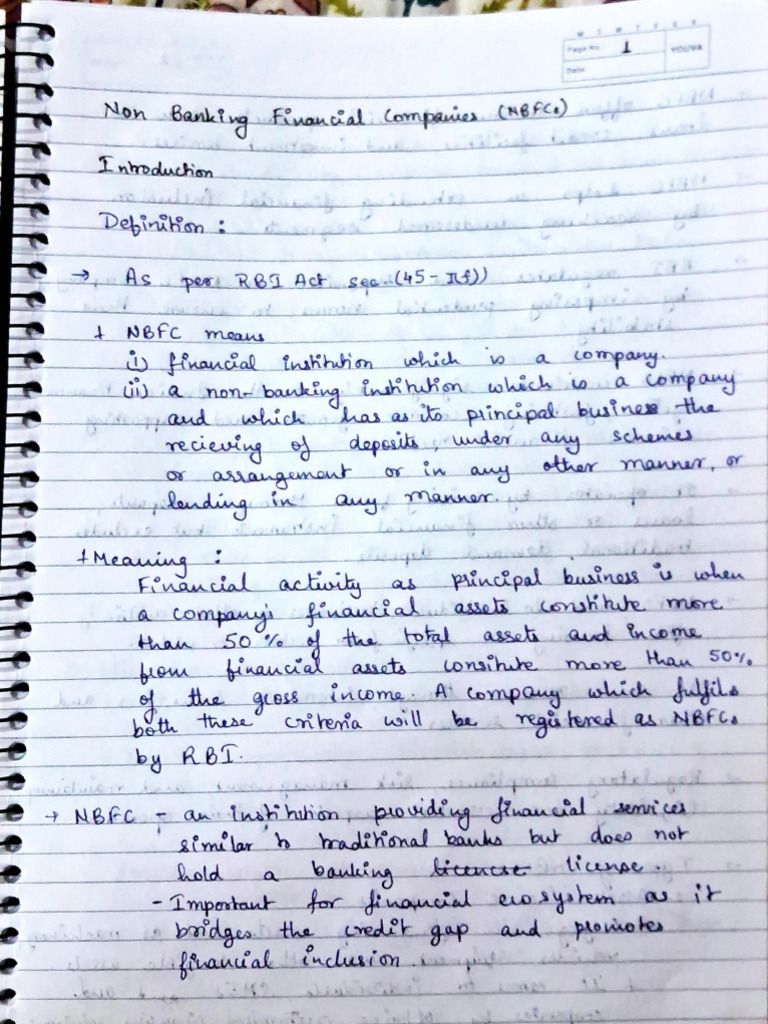 M T W T F S S
Page No.: 1
YOUVA
Date:
Non Banking Financial Companies (NBFCs)
Introduction
Definition :
→ As per RBI Act sec. (45-I(f))
+ NBFC means
(i) financial institution which is a company.
(ii) a non-banking institution which is a company
and which has as its principal business the
recieving of deposits, under any schemes
or arrangement or in any other manner, or
lending in any manner.
+ Meaning :
Financial activity as principal business is when
a company's financial assets constitute more
than 50% of the total assets and income
from financial assets consitute more than 50%
of the gross income. A company which fulfils
both these criteria will be registered as NBFCs
by RBI.
→ NBFC - an institution, providing financial services
similar to traditional banks but does not
hold a banking license.
- Important for financial ecosystem as it
bridges the credit gap and promotes
financial inclusion.